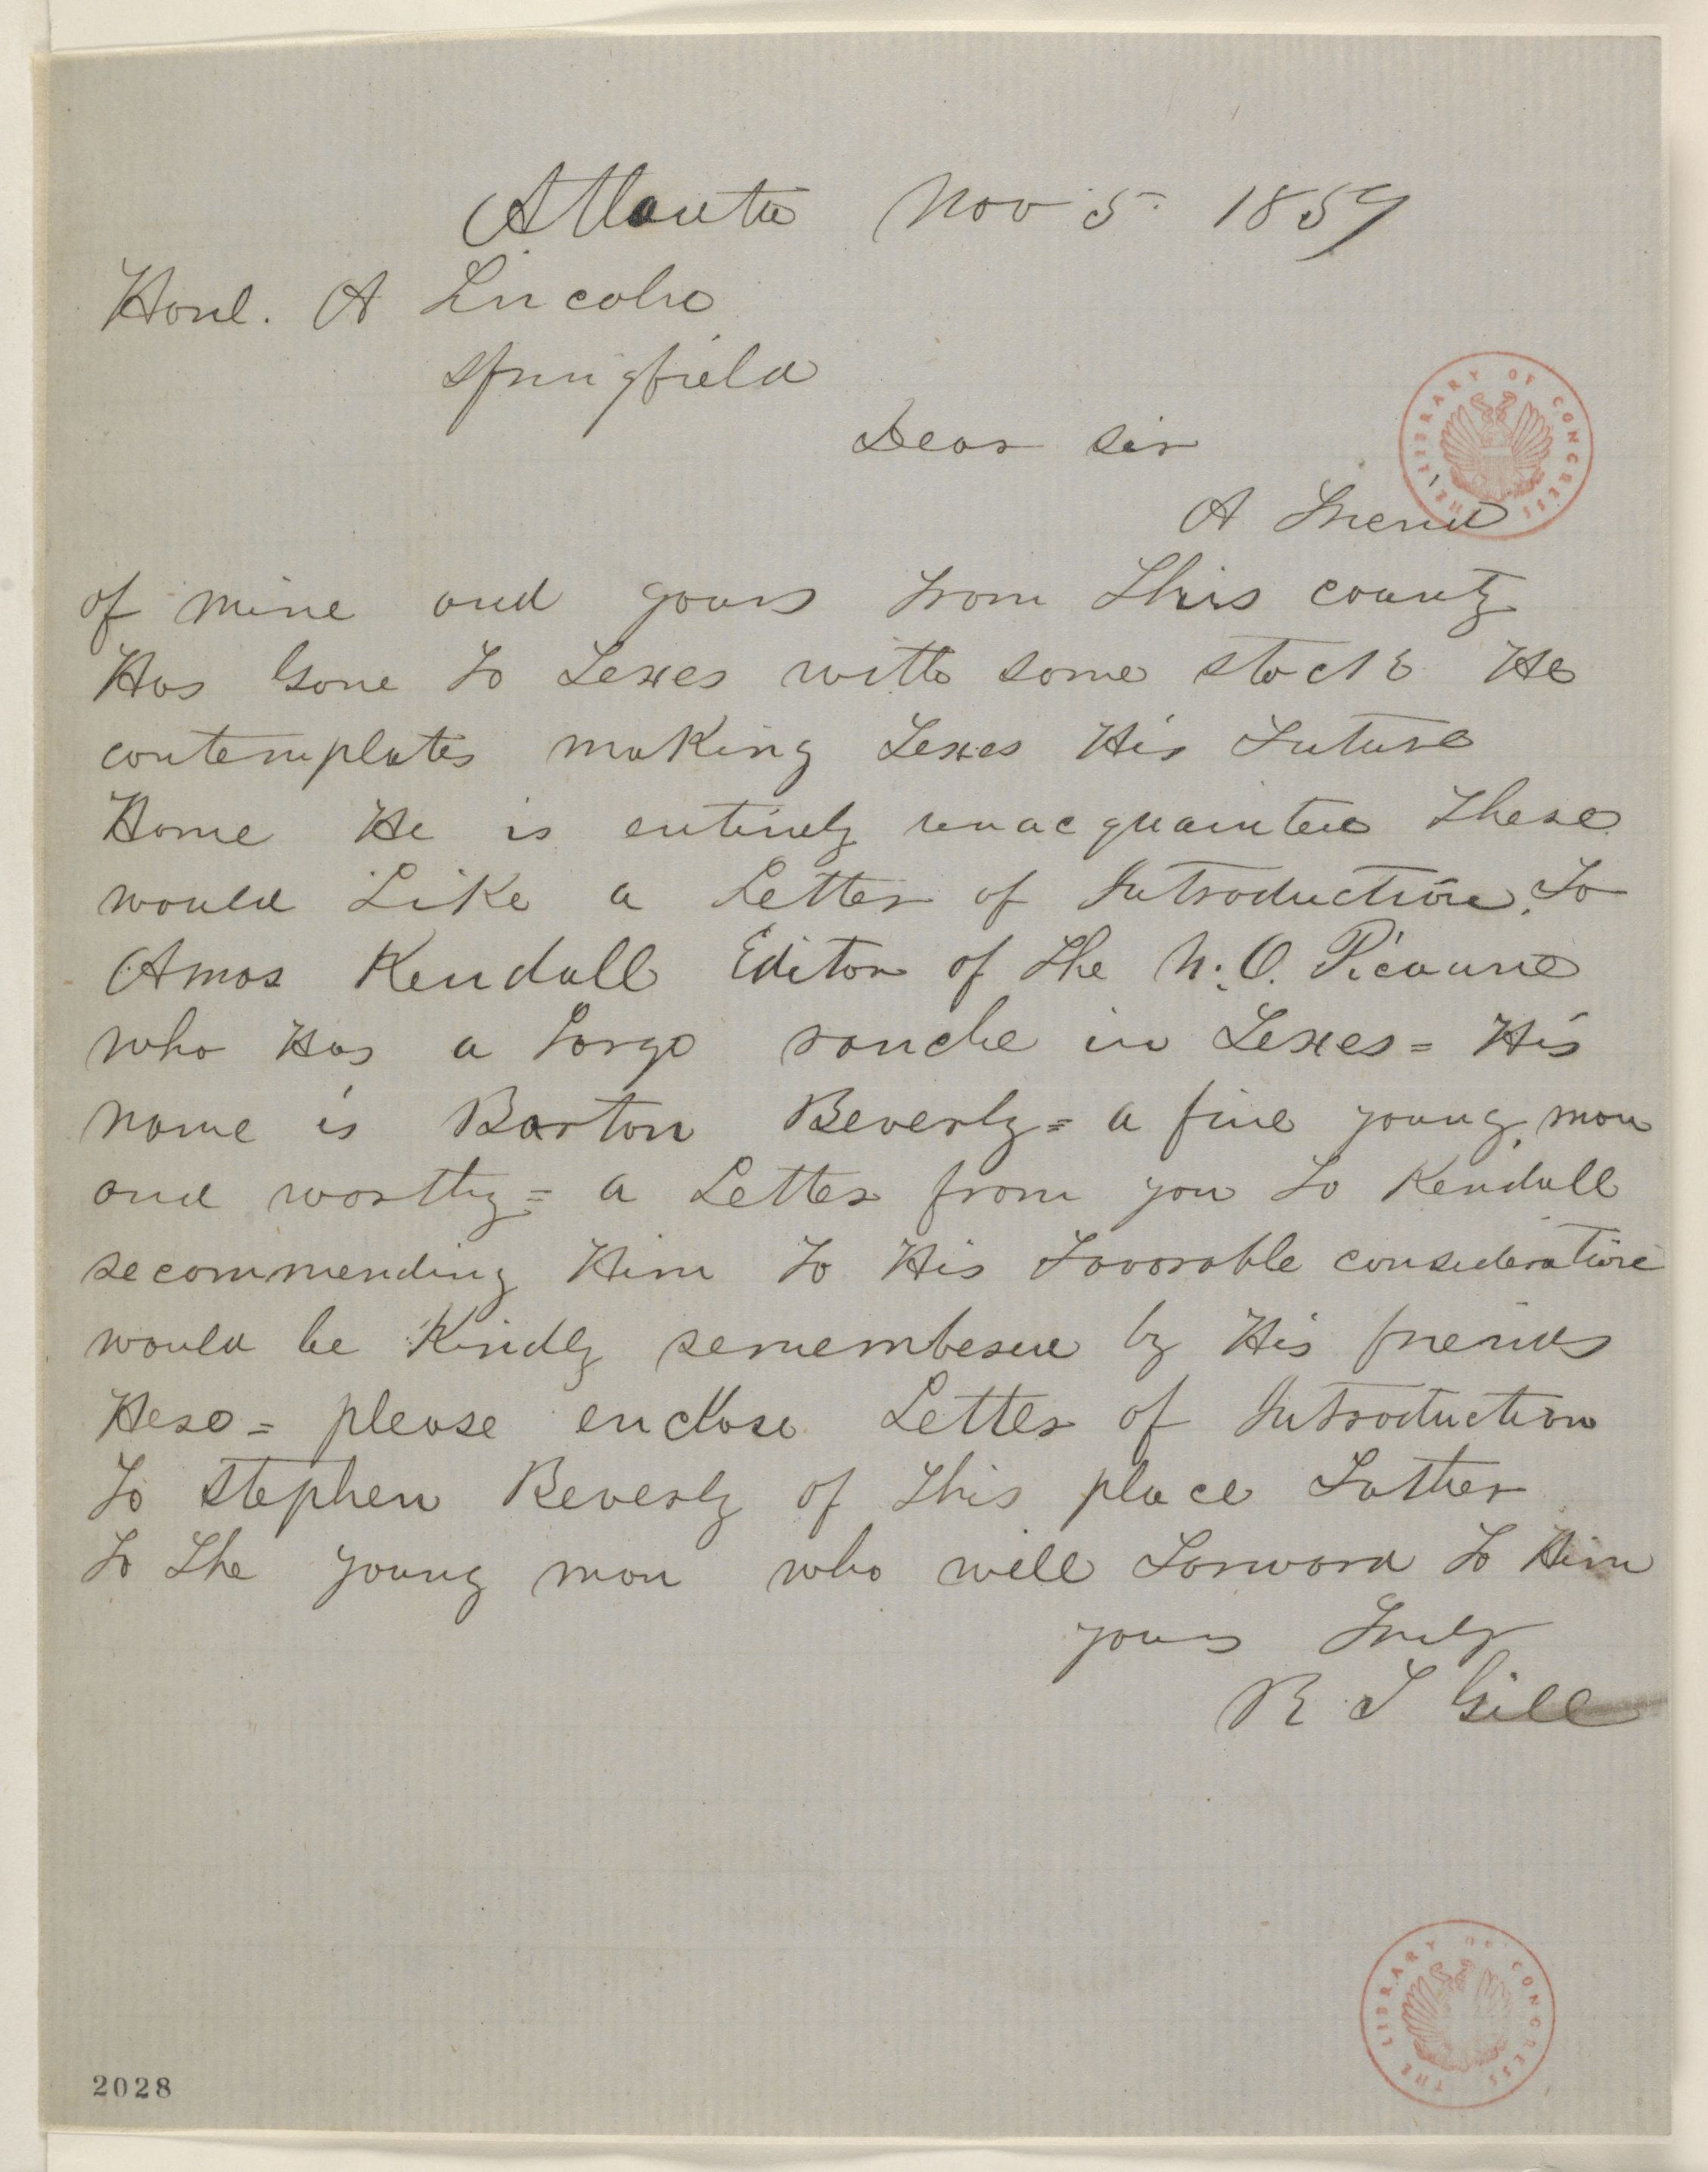 Atlanta Nov 5. 1859
Honl. A Lincoln
Springfield
Dear sir
A Friend
of mine and yours from this county
Has Gone To Texes with some stock He
contemplates making Texes His Future
Home He is entirely unacquainted There
would Like a Letter of Introduction To
Amos Kendall Editor of the N. O. Picaune
who Has a Large ranche in Texes = His
name is Barton Beverly = a fine young man
and worthy = a Letter from you to Kendall
recommending Him To His Favorable consideration
would be Kindly remembered by His friends
Here = please enclose Letter of Introduction
To Stephen Beverly of This place Father
To The young man who will Forward To Him
yours Truly
R T Gill
THE LIBRARY OF CONGRESS
THE LIBRARY OF CONGRESS
2028